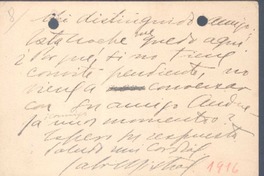 8/ Mi distinguido amigo:
esta noche me quedo aquí
¿Por qué, si no tiene
convite pendiente, no
viene a conversar
con su amigo
unos momentos?
Espero su respuesta
Saluda muy cordial
Gab. Mistral
1916